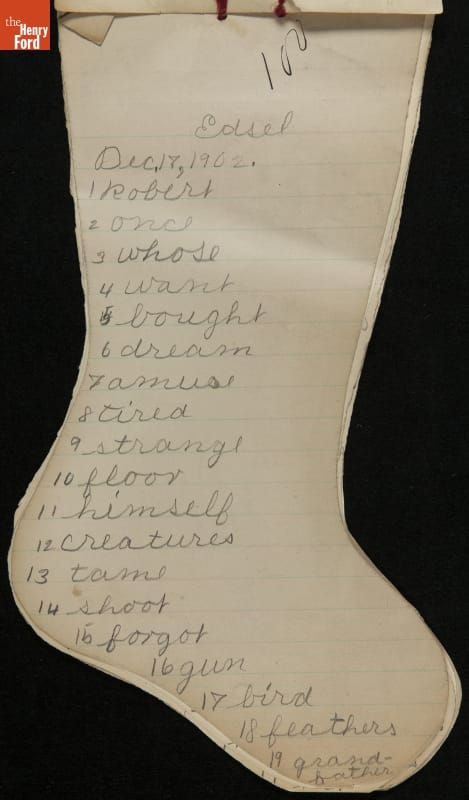 the
Henry
Ford
100
Edsel
Dec,17,1902.
1 Robert
2 once
3 whose
4 want
5 bought
6 dream
7 amuse
8 tired
9 strange
10 floor
11 himself
12 creatures
13 tame
14 shoot
15 forgot
16 gun
17 bird
18 feathers
19 grand-
father